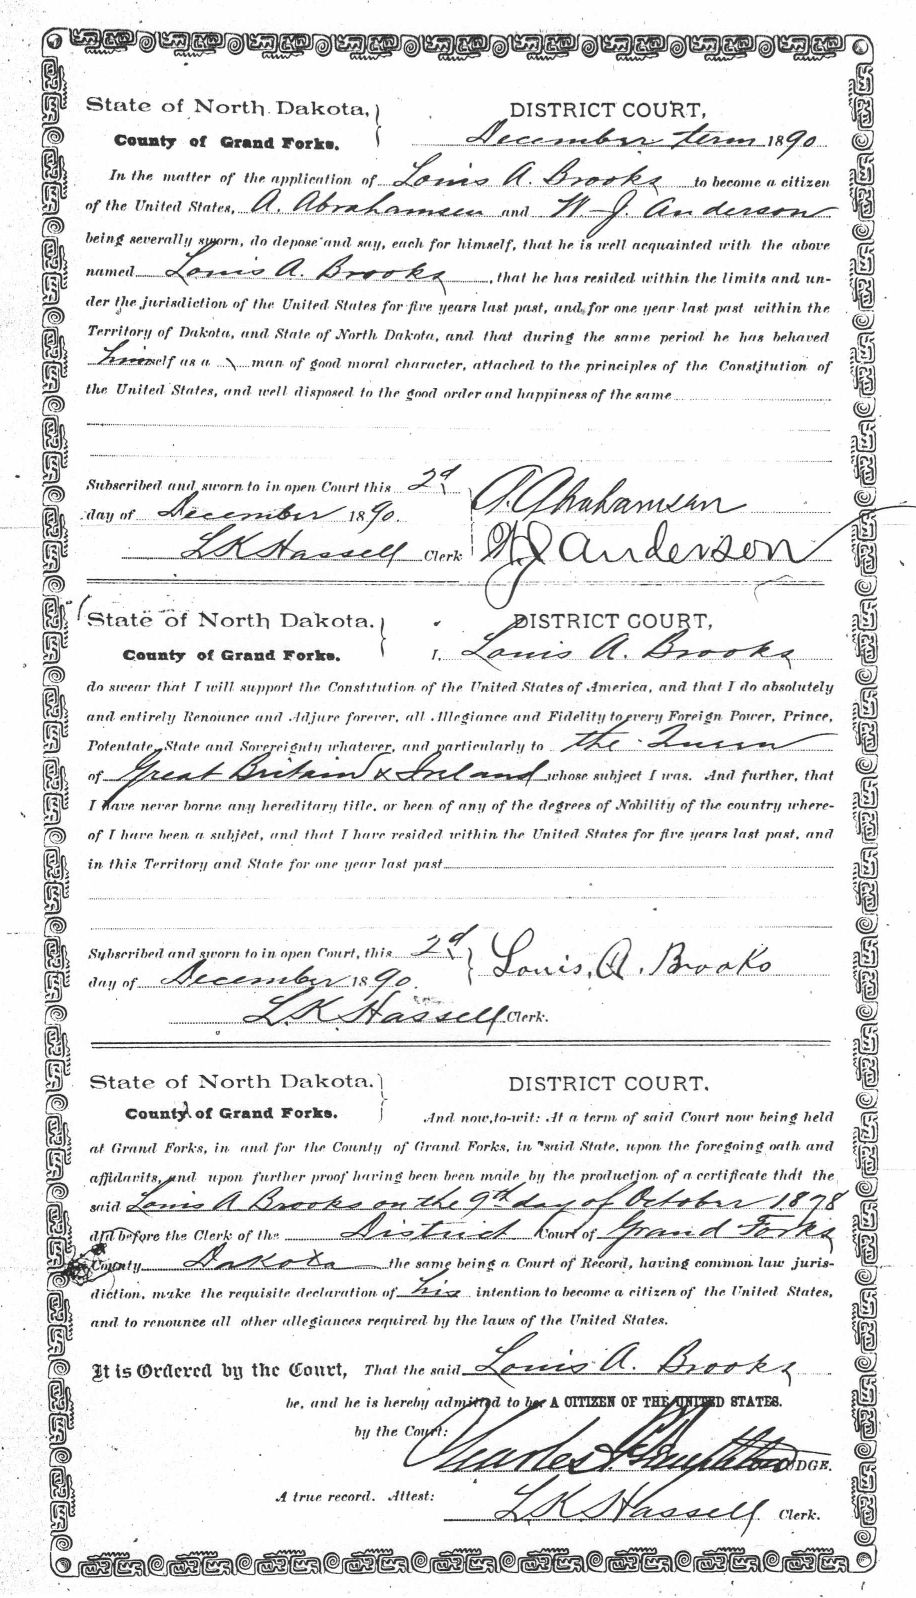 State of North Dakota, DISTRICT COURT,
County of Grand Forks. December term 1890
In the matter of the application of Louis A. Brooks to become a citizen
of the United States, A. Abrahamsen and W-J. Anderson
being severally sworn, do depose and say, each for himself, that he is well acquainted with the above
named Louis A. Brooks, that he has resided within the limits and un-
der the jurisdiction of the United States for five years last past, and for one year last past within the
Territory of Dakota, and State of North Dakota, and that during the same period he has behaved
himself as a \ man of good moral character, attached to the principles of the Constitution of
the United States, and well disposed to the good order and happiness of the same
Subscribed and sworn to in open Court this 2d A. Abrahamsen
day of December 1890.
L K Hassell Clerk W J Anderson
State of North Dakota. DISTRICT COURT,
County of Grand Forks. I, Louis A. Brooks
do swear that I will support the Constitution of the United States of America, and that I do absolutely
and entirely Renounce and Adjure forever, all Allegiance and Fidelity to every Foreign Power, Prince,
Potentate, State and Sovereignty whatever, and particularly to the Queen
of Great Britain & Ireland whose subject I was. And further, that
I have never borne any hereditary title, or been of any of the degrees of Nobility of the country where-
of I have been a subject, and that I have resided within the United States for five years last past, and
in this Territory and State for one year last past
Subscribed and sworn to in open Court, this 2d Louis, A. Brooks
day of December 1890.
L. K Hassell Clerk.
State of North Dakota. DISTRICT COURT.
County of Grand Forks. And now, to-wit: At a term of said Court now being held
at Grand Forks, in and for the County of Grand Forks, in said State, upon the foregoing oath and
affidavits, and upon further proof having been been made by the production of a certificate that the
said Louis A Brooks on the 9th day of October 1878
did before the Clerk of the District Court of Grand Forks
County Dakota the same being a Court of Record, having common law juris-
diction, make the requisite declaration of his intention to become a citizen of the United States,
and to renounce all other allegiances required by the laws of the United States.
It is Ordered by the Court, That the said Louis A. Brooks
be, and he is hereby admitted to be A CITIZEN OF THE UNITED STATES.
by the Court:
Charles F. Templeton JUDGE.
A true record. Attest:
L K Hassell Clerk.